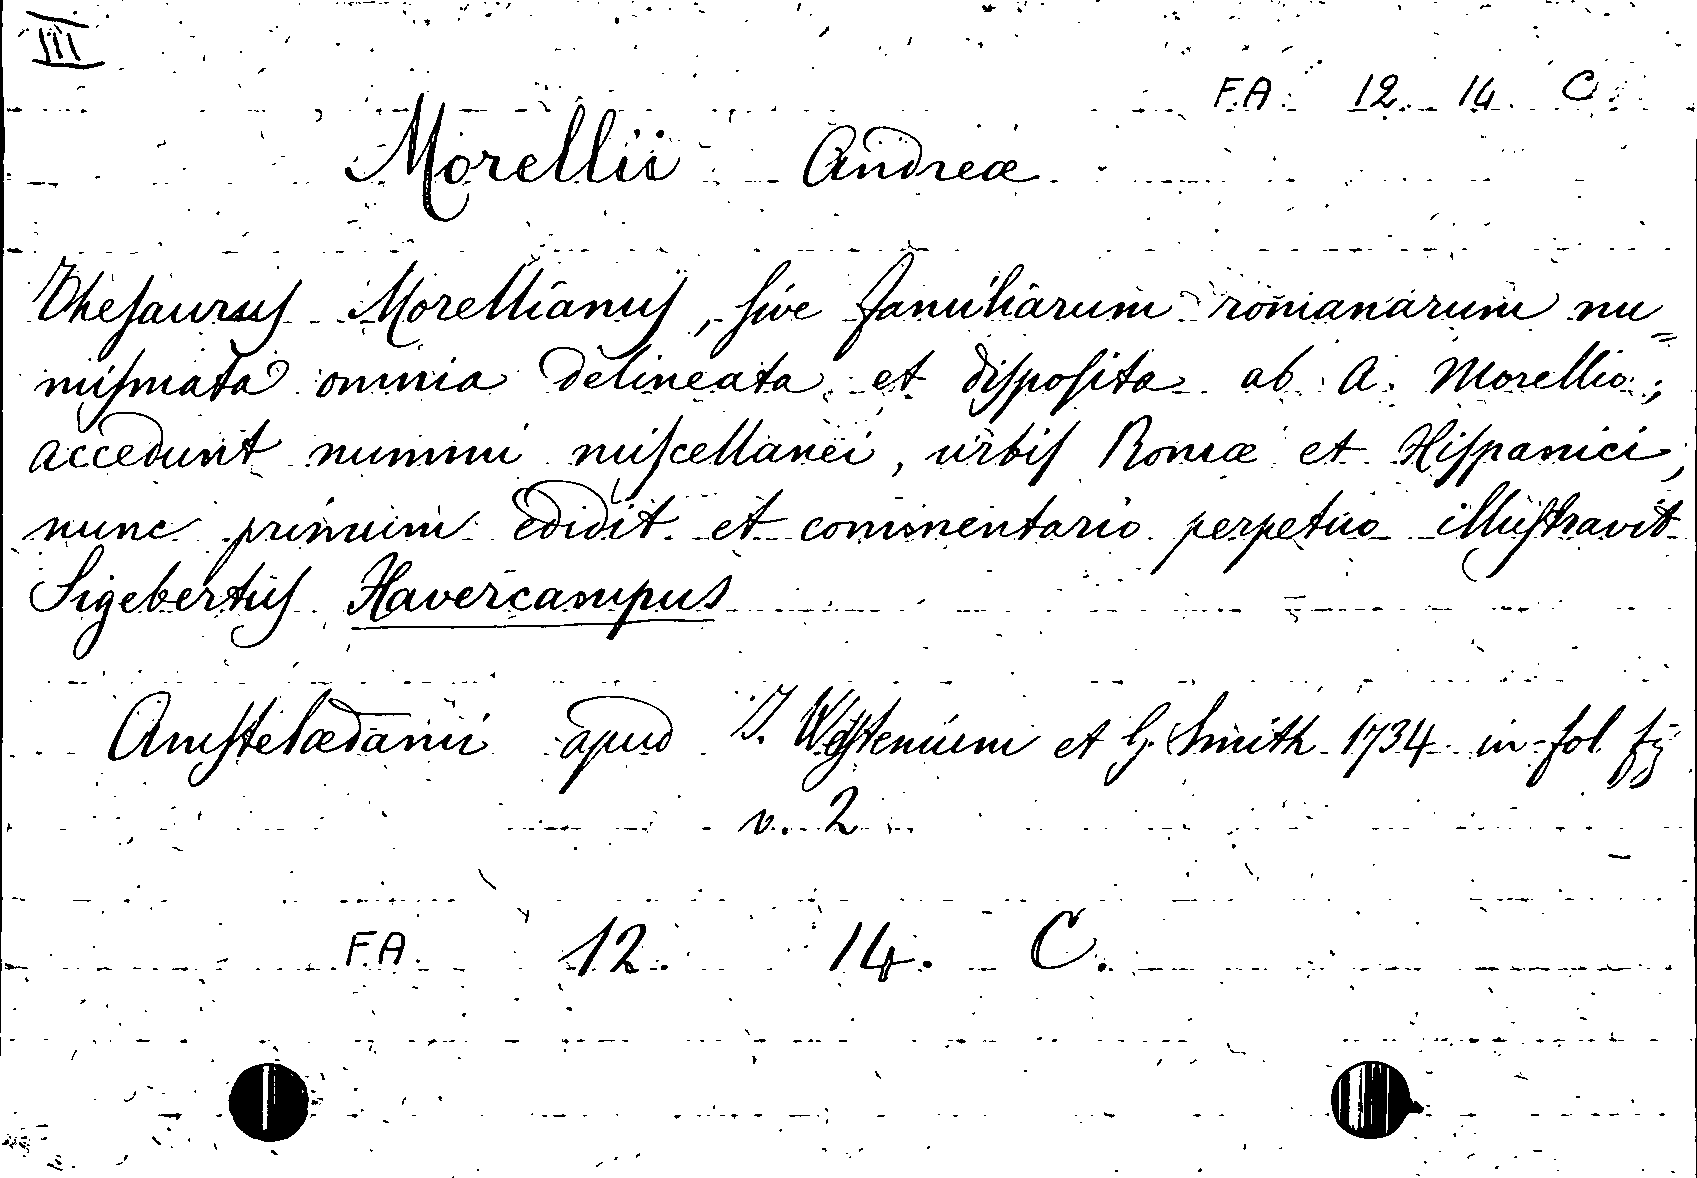 III
F.A. 12. 14. C.
Morellii Andreæ
Thesaurus Morellianus, sive familiarum romanarum nu=
mismata omnia delineata et disposita ab A. Morellio;
accedunt nummi miscellanei, urbis Romæ et Hispanici,
nunc primum edidit et commentario perpetuo illustravit
Sigebertus Havercampus
Amstelædami apud J. Wetstenium et G. Smith 1734 in fol. fig
v. 2
F.A. 12. 14. C.